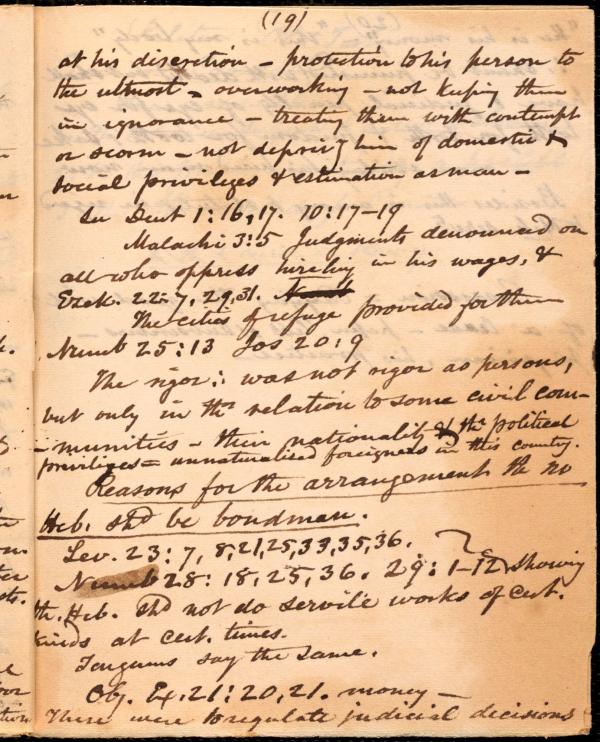 (19)
at his discretion – protection to his person to
the utmost – overworking – not keeping them
in ignorance – treating them with contempt
or scorn – not depriv'g him of domestic &
social privileges & estimation as man –
In Deut 1:16,17. 10:17–19
Malachi 3:5 Judgments denounced on
all who oppress hireling in his wages, &
Ezek. 22:7, 29,31. Numb
The cities of refuge provided for them
Numb 25:13 Jos 20:9
The rigor was not rigor as persons,
but only in the relation to some civil com–
–munities – their nationality & the political
privileges = unnaturalised foreigners in this country.
Reasons for the arrangement the no
Heb. shd be bondman.
Lev. 23:7, 8,21,25,33,35,36.
Numb 28:18,25,36. 29:1–12 showing
th. Heb. shd not do servile works of cert.
kinds at cert. times.
Targums say the same.
Obj. Ex. 21:20,21. money –
These were to regulate judicial decisions